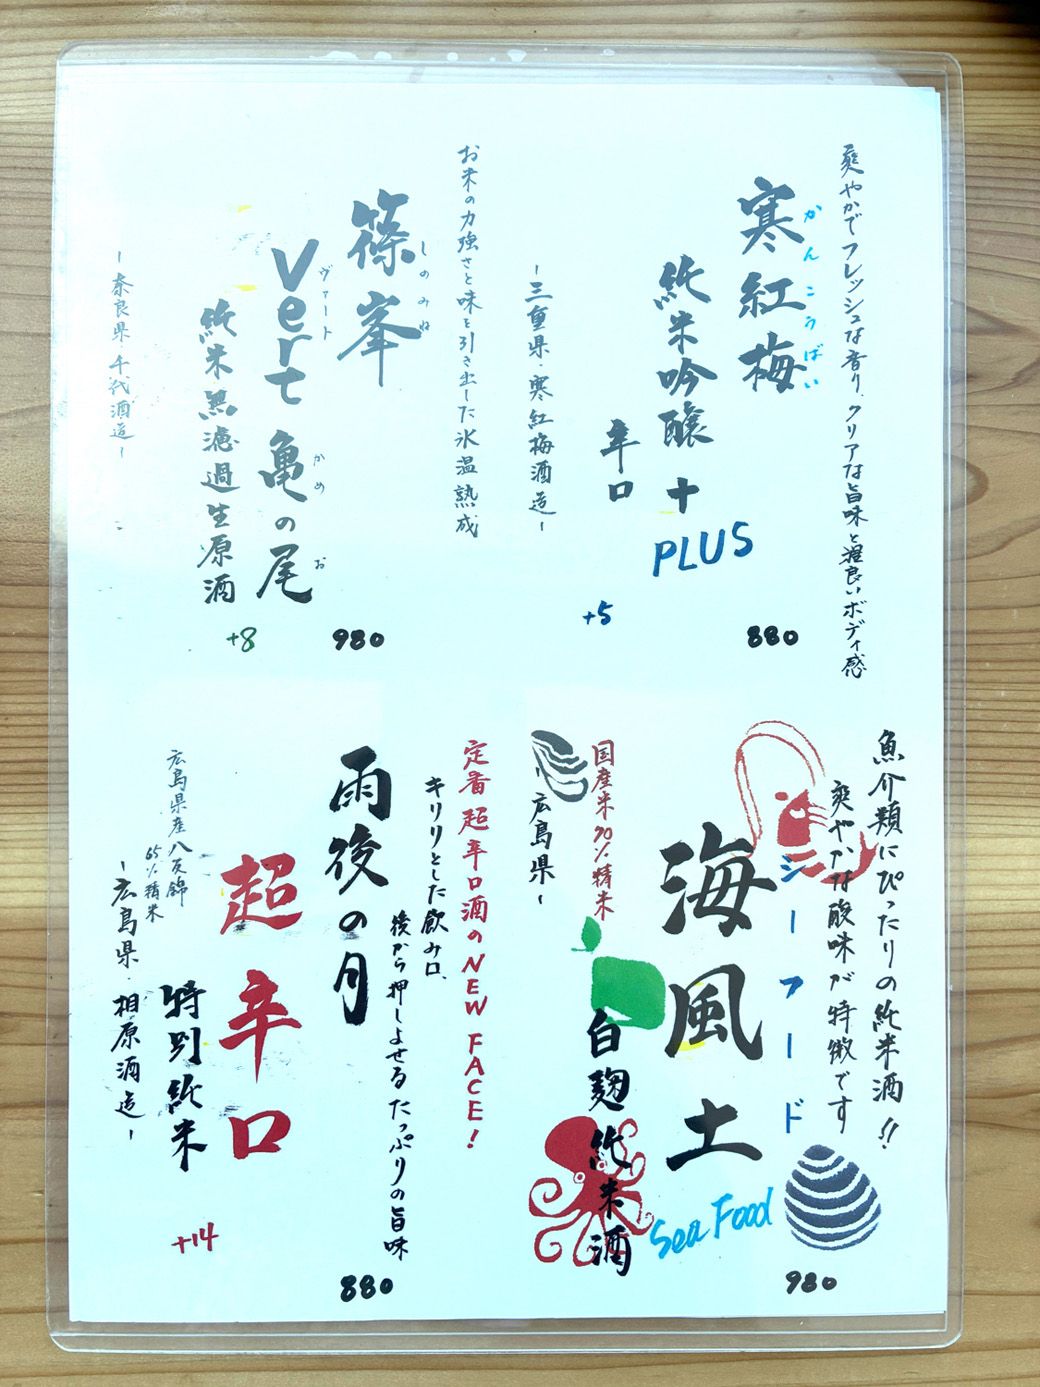 爽やかでフレッシュな香り、クリアな旨味と程良いボディ感
寒紅梅
かんこうばい
純米吟醸+
PLUS
辛口
-三重県・寒紅梅酒造-
+5
880
お米の力強さと味を引き出した氷温熟成
篠峯
しのみね
Vert 亀の尾
ヴァート
かめ
お
純米無濾過生原酒
-奈良県 千代酒造-
+8
980
魚介類にぴったりの純米酒!!
爽やかな酸味が特徴です
シーフード
海風土
Sea Food
白麹 純米酒
国産米70%精米
-広島県-
980
定番超辛口酒のNEW FACE!
キリリとした飲み口、
後から押しよせるたっぷりの旨味
雨後の月
超辛口
特別純米
広島県産八反錦
65%精米
-広島県・相原酒造-
+14
880